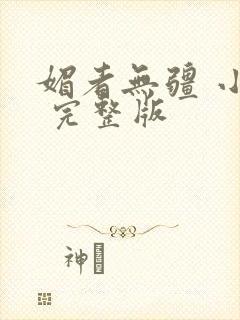 媚者無疆 小
完整版
神